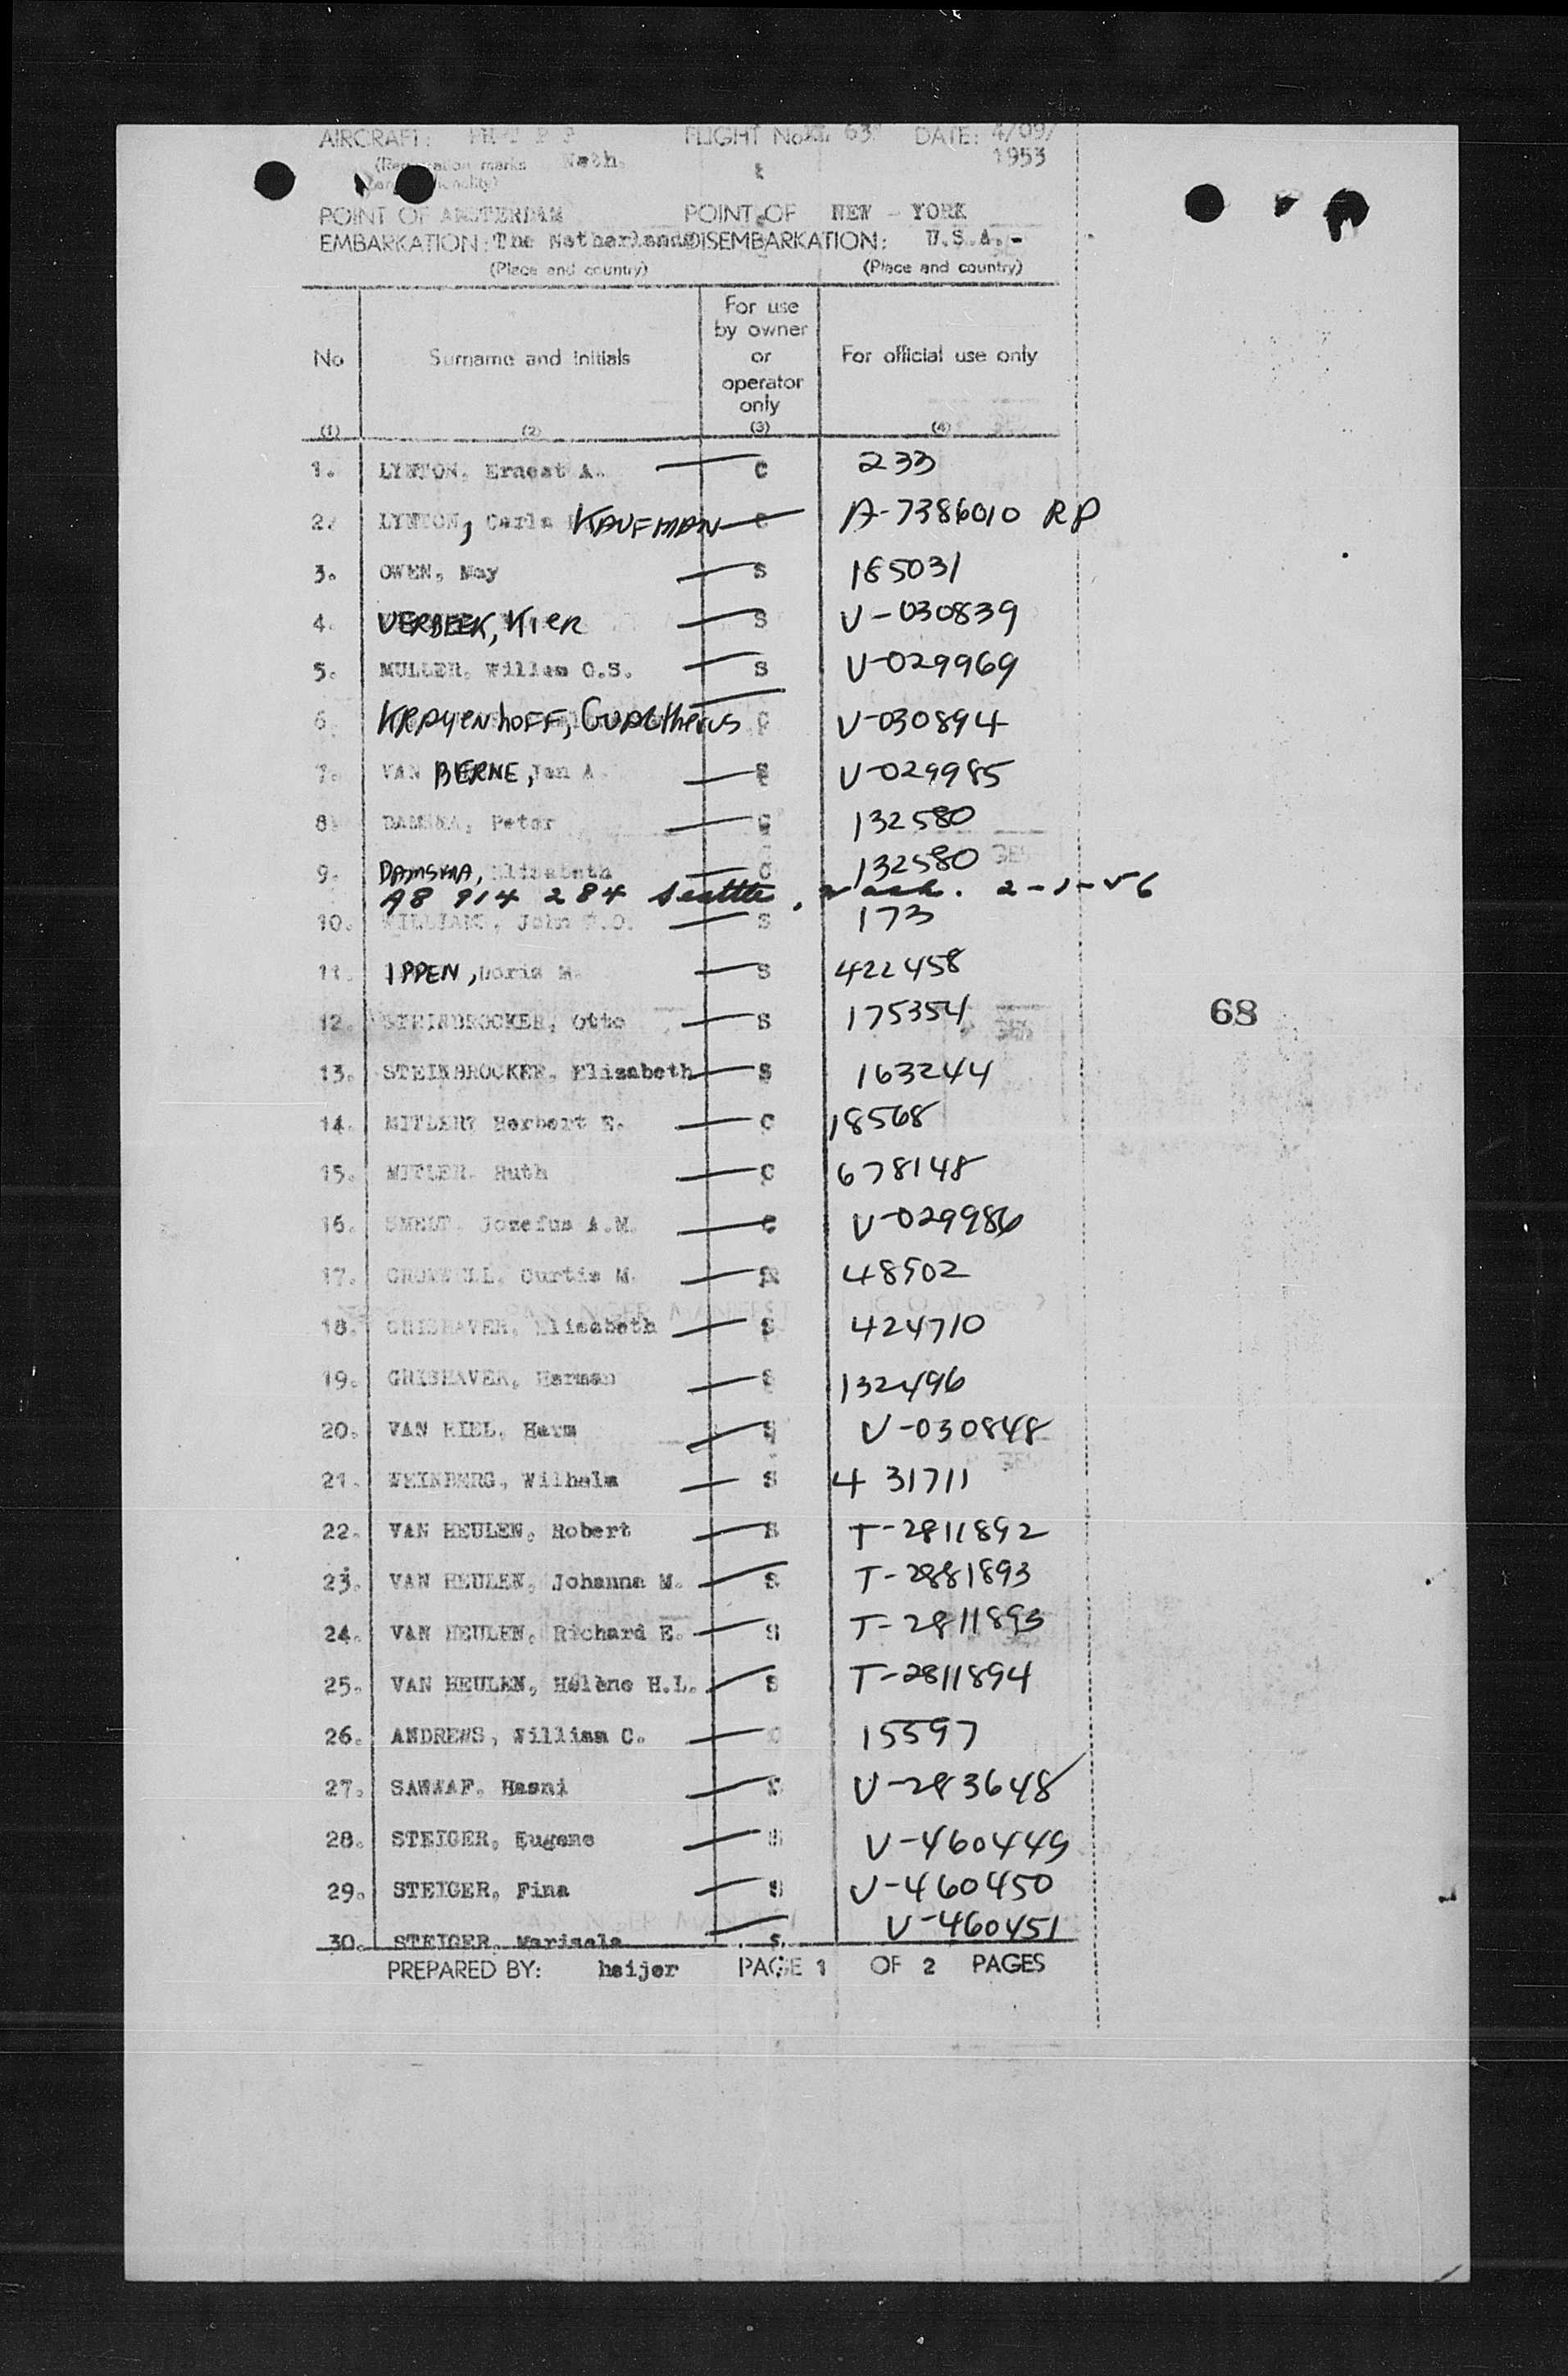 AIRCRAFT: FLIGHT No 63 DATE: 4/09/
(Registration marks Neth. 1953
and nationality)
POINT OF AMSTERDAM POINT OF NEW - YORK
EMBARKATION: The Netherlands DISEMBARKATION: U.S.A.-
(Place and country) (Place and country)
No Surname and initials For use by owner or operator only For official use only
(1) (2) (3) (4)
1. LYNTON, Ernest A. C 233
2. LYNTON, Carla KAUFMAN C A-7386010 RP
3. OWEN, May S 185031
4. VERBEEK, Kier S V-030839
5. MULLER, Willem C.S. S V-029969
6. KRAYENHOFF, Gualtherus C V-030894
7. VAN BERNE, Jan A. S V-029985
8. DAMSMA, Peter C 132580
9. DAMSMA, Elisabeth C 132580
A8 914 284 Seattle, Wash. 2-1-56
10. WILLIAMS, John S 173
11. IPPEN, Doris M. S 422458
12. STEINBROCKER, Otto S 175354
13. STEINBROCKER, Elisabeth S 163244
14. MITLER, Herbert E. C 18568
15. MITLER, Ruth C 678148
16. SMELT, Jozefus A.M. C V-029986
17. Curtis M. 48502
18. GRISHAVER, Elisabeth S 424710
19. GRISHAVER, Herman S 132496
20. VAN RIEL, Harm S V-030848
21. WEINBERG, Wilhelm S 431711
22. VAN HEULEN, Robert S T-2811892
23. VAN HEULEN, Johanna M. S T-2881893
24. VAN HEULEN, Richard E. S T-2811893
25. VAN HEULEN, Hélène H.L. S T-2811894
26. ANDREWS, William C. C 15597
27. SAWWAF, Hasni V-283648
28. STEIGER, Eugene S V-460449
29. STEIGER, Fina S V-460450
30. STEIGER, Marisela S. V-460451
PREPARED BY: heijer PAGE 1 OF 2 PAGES
68